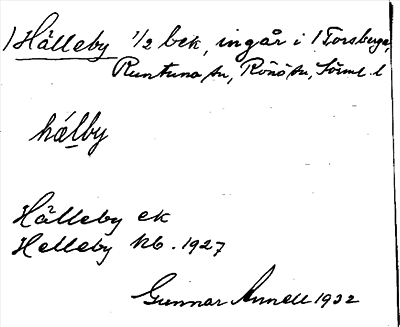 /Hålleby 1/2 bek, ingår i /Torsberga,
Runtuna sn, Rönö hd, Söml. l
hálby
Hålleby ek
Helleby kb. 1927
Gunnar Annell 1932